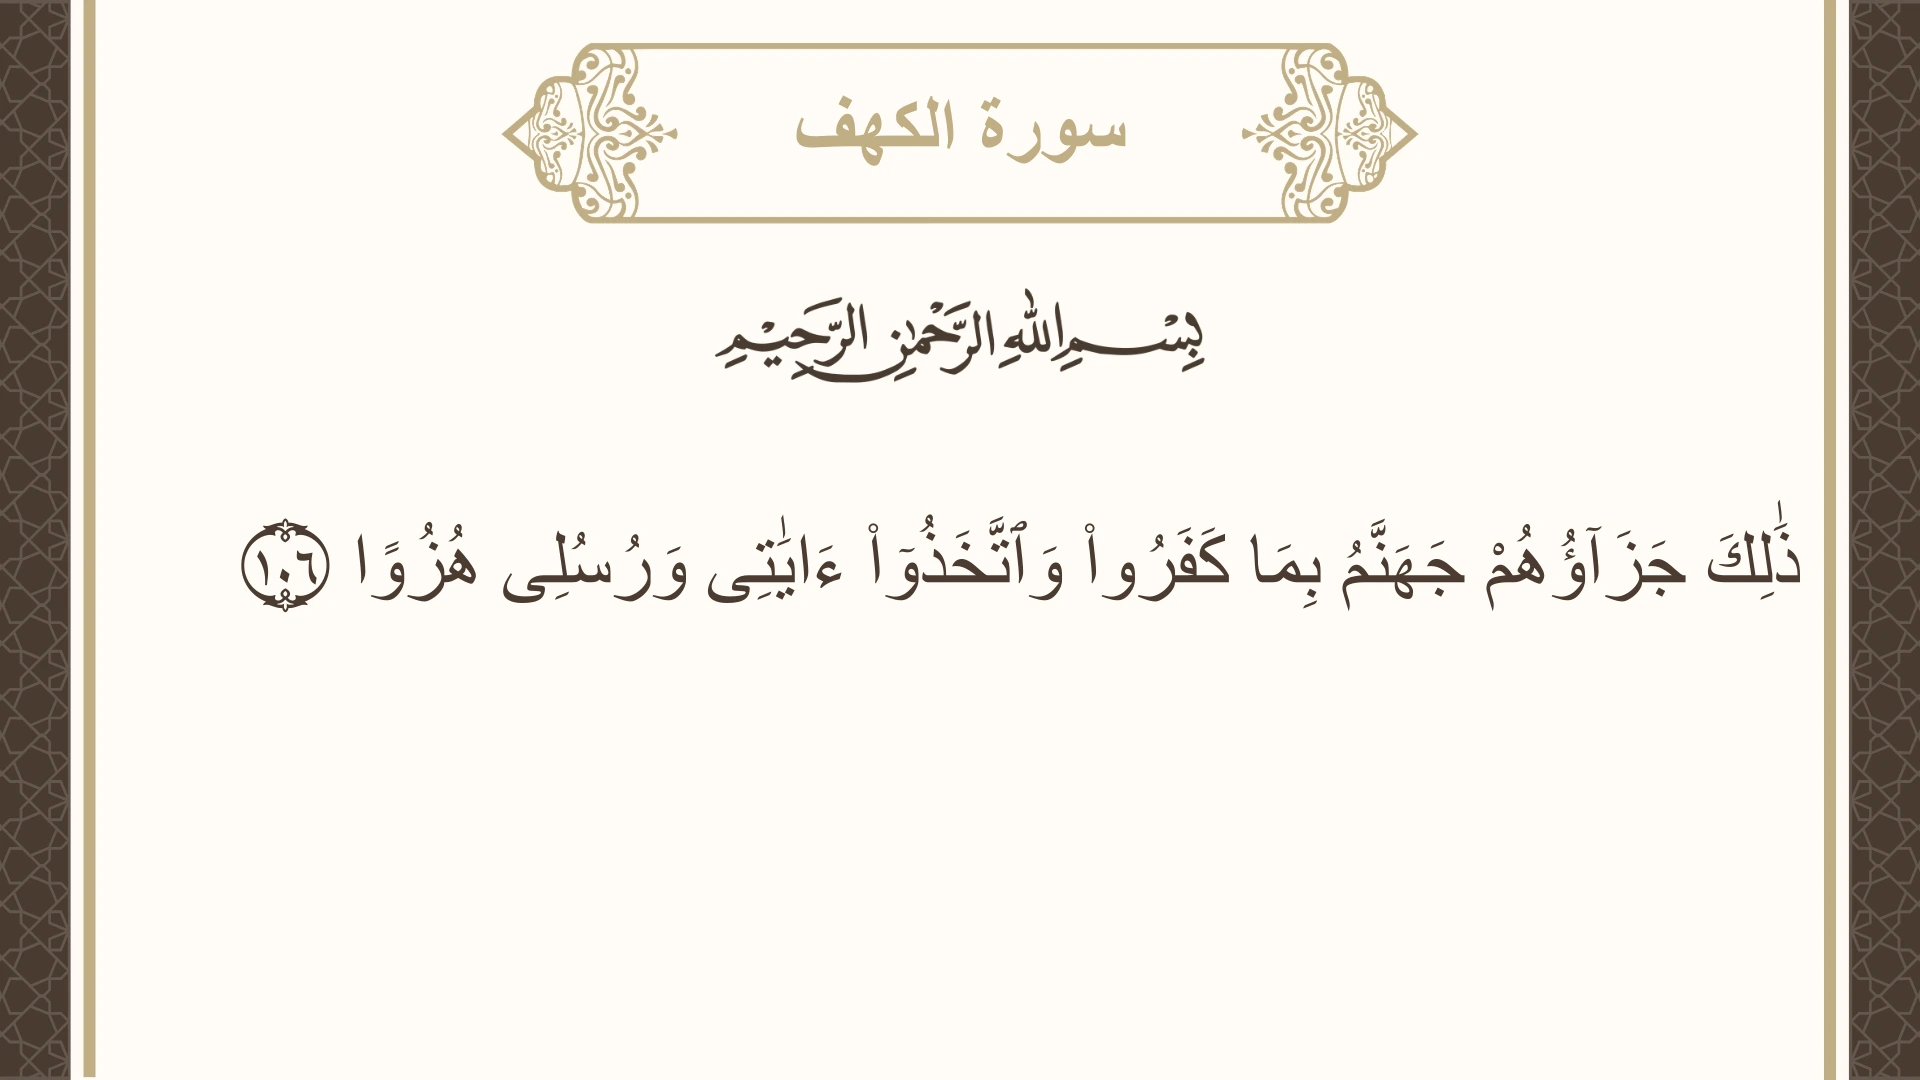 سورة الكهف
بِسْمِ اللهِ الرَّحْمٰنِ الرَّحِيْمِ
ذَٰلِكَ جَزَآؤُهُمْ جَهَنَّمُ بِمَا كَفَرُوا۟ وَٱتَّخَذُوٓا۟ ءَايَـٰتِى وَرُسُلِى هُزُوًا ١٠٦